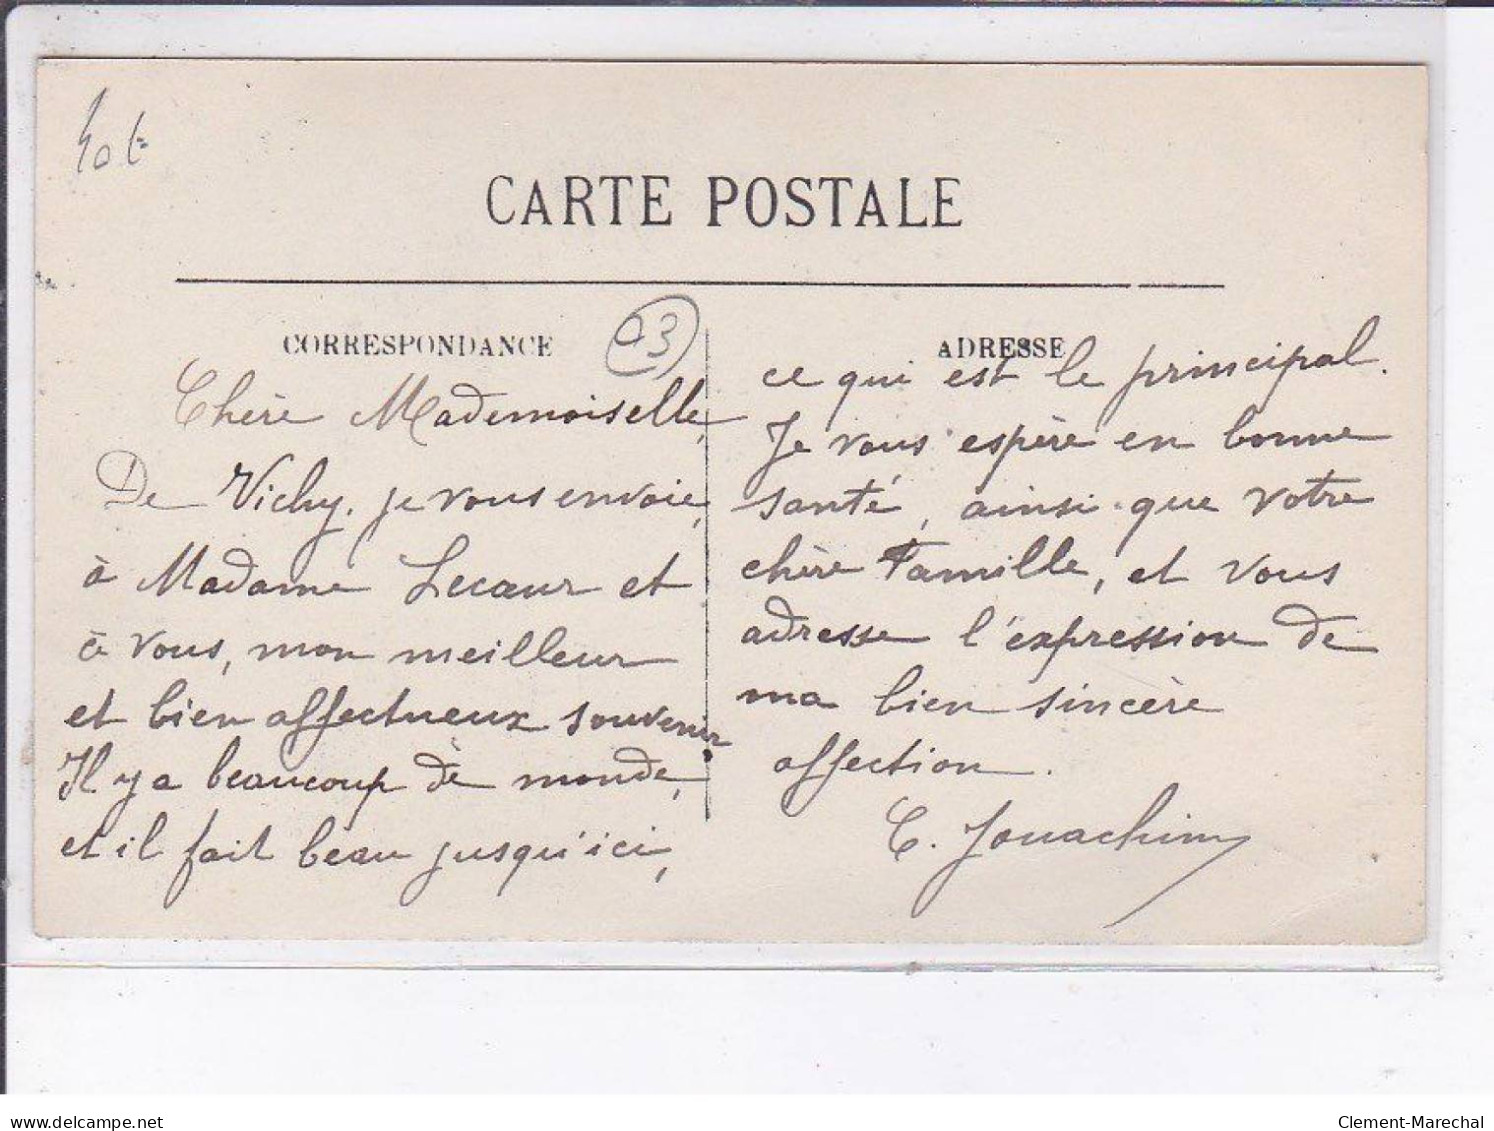 40 €
CARTE POSTALE
CORRESPONDANCE
03
ADRESSE
Chère Mademoiselle,
De Vichy, je vous envoie,
à Madame Lecœur et
à vous, mon meilleur
et bien affectueux souvenir.
Il y a beaucoup de monde,
et il fait beau jusqu'ici,
ce qui est le principal.
Je vous espère en bonne
santé, ainsi que votre
chère Famille, et vous
adresse l'expression de
ma bien sincère
affection.
C. Jouachim
delcampe.net
Clement-Marechal